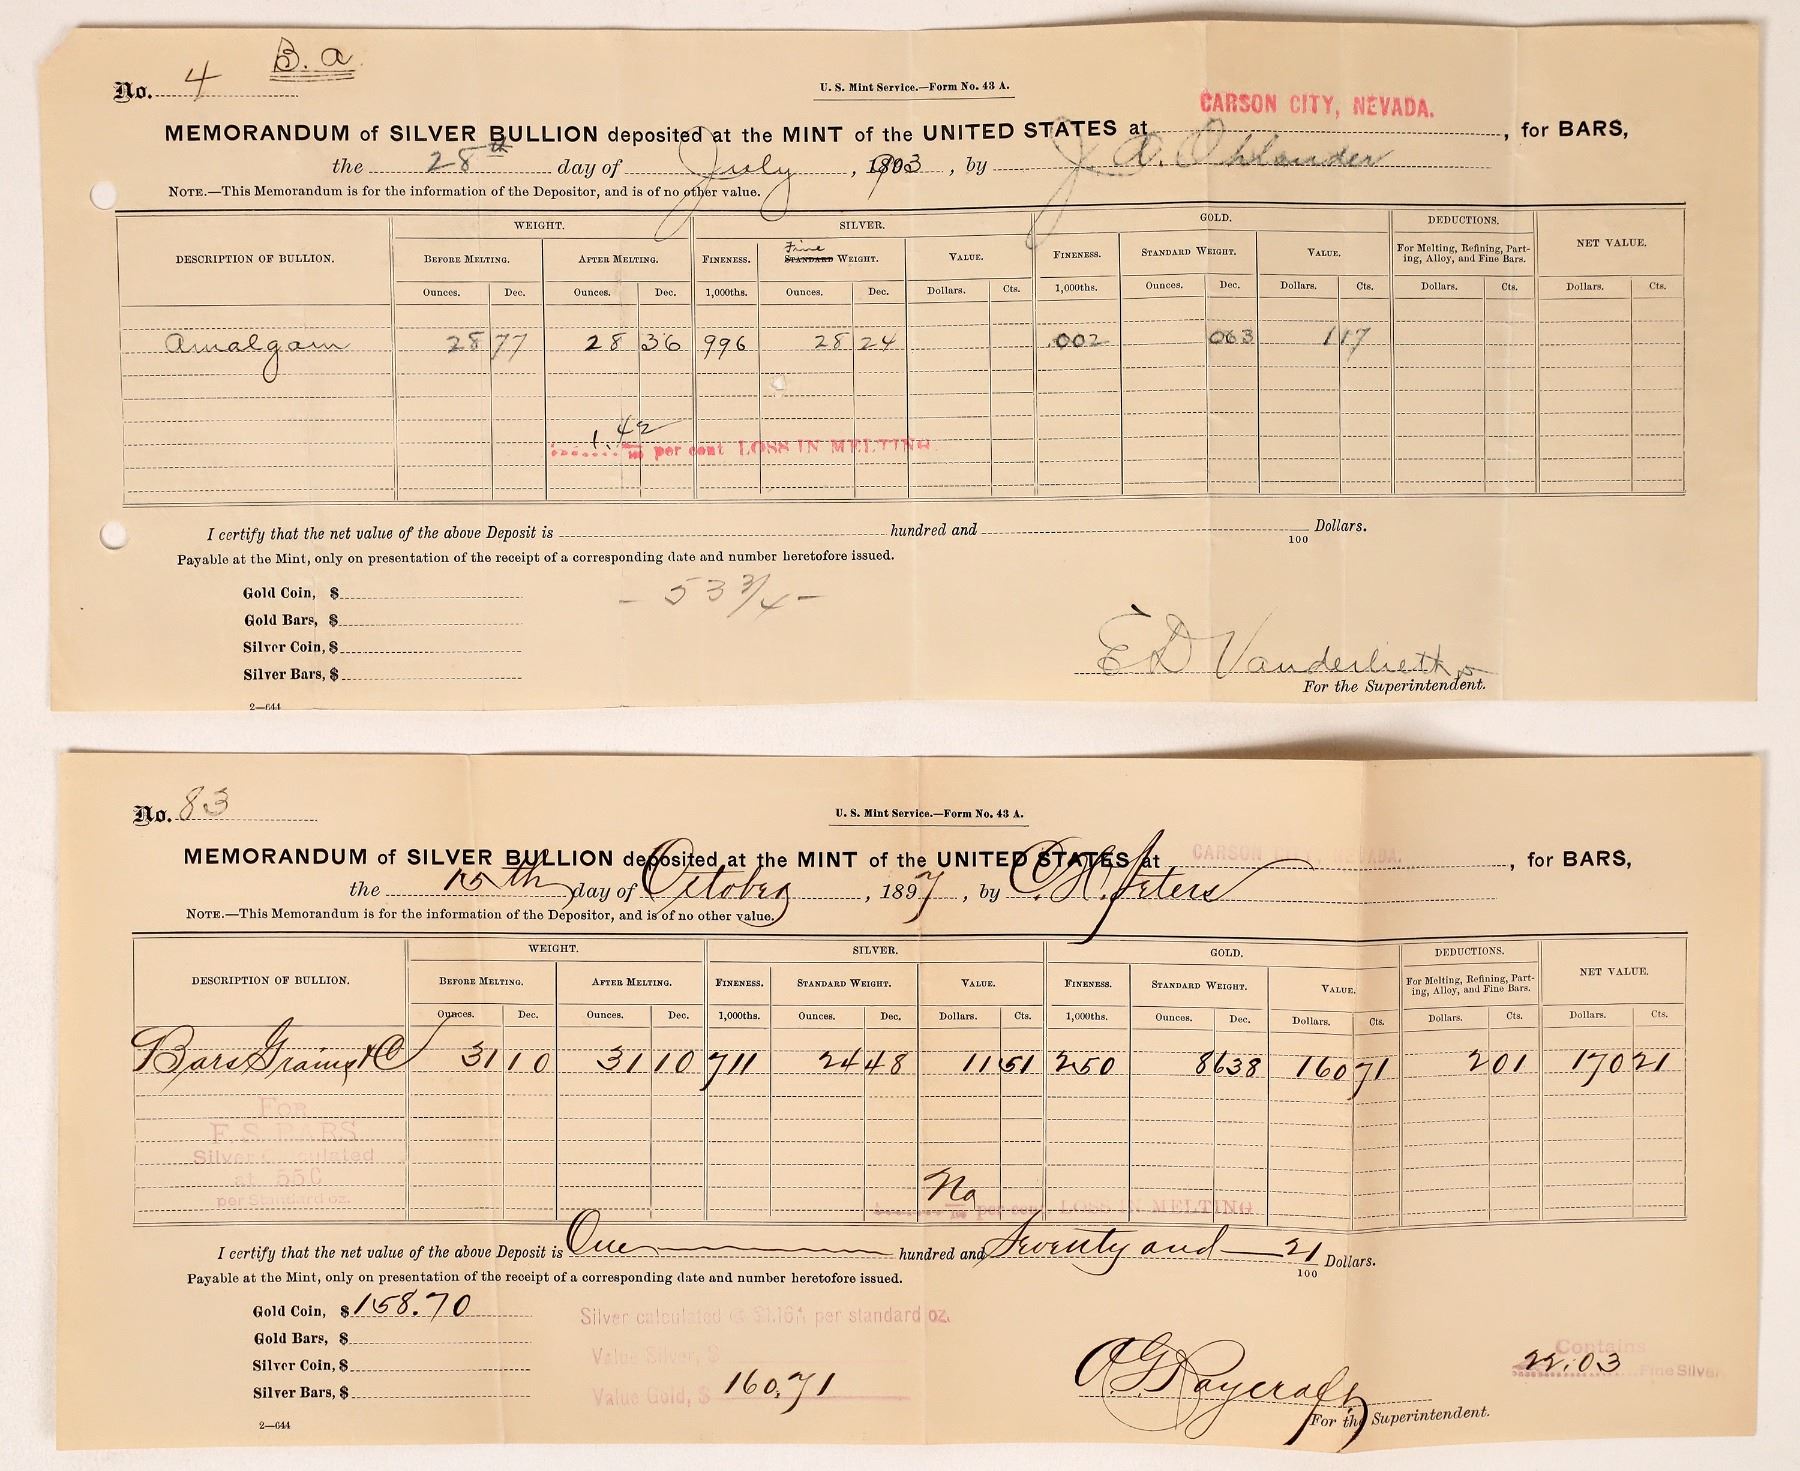 B. a
No. 4
U. S. Mint Service.—Form No. 43 A.
CARSON CITY, NEVADA.
MEMORANDUM of SILVER BULLION deposited at the MINT of the UNITED STATES at , for BARS,
the 28th day of July , 1903 , by J. A. Ohlander
NOTE.—This Memorandum is for the information of the Depositor, and is of no other value.
WEIGHT. SILVER. GOLD. DEDUCTIONS.
DESCRIPTION OF BULLION. BEFORE MELTING. AFTER MELTING. FINENESS. Fine STANDARD WEIGHT. VALUE. FINENESS. STANDARD WEIGHT. VALUE. For Melting, Refining, Parting, Alloy, and Fine Bars. NET VALUE.
Ounces. Dec. Ounces. Dec. 1,000ths. Ounces. Dec. Dollars. Cts. 1,000ths. Ounces. Dec. Dollars. Cts. Dollars. Cts. Dollars. Cts.
Amalgam 28 77 28 36 996 28 24 .002 063 1 17
1.42/100 per cent LOSS IN MELTING
I certify that the net value of the above Deposit is hundred and /100 Dollars.
Payable at the Mint, only on presentation of the receipt of a corresponding date and number heretofore issued.
Gold Coin, $
- 53 3/4 -
Gold Bars, $
Silver Coin, $
Silver Bars, $
E D Vanderlieth
For the Superintendent.
2—644
No. 83
U. S. Mint Service.—Form No. 43 A.
MEMORANDUM of SILVER BULLION deposited at the MINT of the UNITED STATES at CARSON CITY, NEVADA. , for BARS,
the 15th day of October , 1897 , by C. H. Peters
NOTE.—This Memorandum is for the information of the Depositor, and is of no other value.
WEIGHT. SILVER. GOLD. DEDUCTIONS.
DESCRIPTION OF BULLION. BEFORE MELTING. AFTER MELTING. FINENESS. STANDARD WEIGHT. VALUE. FINENESS. STANDARD WEIGHT. VALUE. For Melting, Refining, Parting, Alloy, and Fine Bars. NET VALUE.
Ounces. Dec. Ounces. Dec. 1,000ths. Ounces. Dec. Dollars. Cts. 1,000ths. Ounces. Dec. Dollars. Cts. Dollars. Cts. Dollars. Cts.
Bars Grains &C 31 10 31 10 711 24 48 11 51 250 8 638 160 71 2 01 170 21
For
F. S. BARS
Silver Calculated
at 55C
per Standard oz.
No /100 per cent LOSS IN MELTING
I certify that the net value of the above Deposit is One hundred and Seventy and 21/100 Dollars.
Payable at the Mint, only on presentation of the receipt of a corresponding date and number heretofore issued.
Gold Coin, $ 158.70
Silver calculated @ $1.16 4 per standard oz.
Gold Bars, $
Value Silver, $
Silver Coin, $
Silver Bars, $
Value Gold, $ 160.71
Contains
22.03 Fine Silver
A G Raycraft
For the Superintendent.
2—644